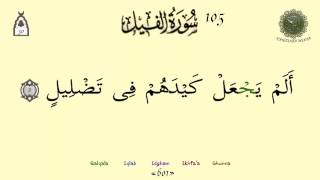 سُورَةُ الفِيلِ 105
30
أَلَمْ يَجْعَلْ كَيْدَهُمْ فِى تَضْلِيلٍ
Qalqala Iqlab Idgham Ikhfa'a Ghunna
«601»